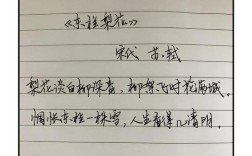 《东栏梨花》
宋代 苏轼
梨花淡白柳深青，柳絮飞时花满城。
惆怅东栏一株雪，人生看得几清明。